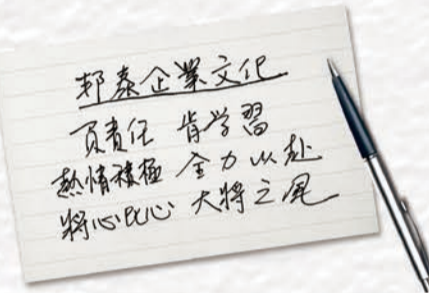 邦泰企業文化
負責任 肯学習
熱情積極 全力以赴
將心比心 大將之風